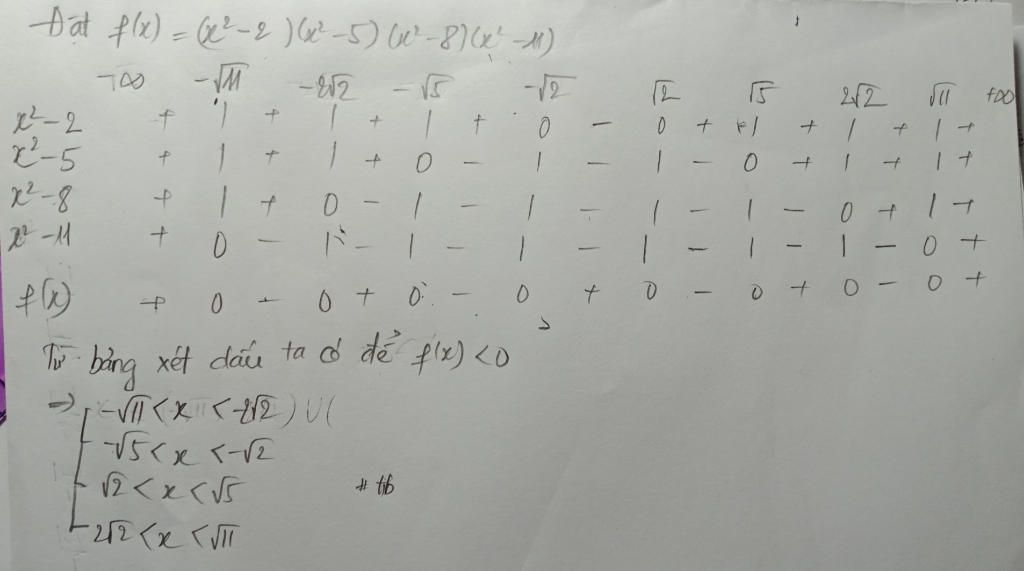 Đặt f(x) = (x²-2)(x²-5)(x²-8)(x²-11)
-∞ -√11 -2√2 -√5 -√2 √2 √5 2√2 √11 +∞
x²-2 + | + | + | + 0 - 0 + | + | + | +
x²-5 + | + | + 0 - | - | - 0 + | + | +
x²-8 + | + 0 - | - | - | - | - 0 + | +
x²-11 + 0 - | - | - | - | - | - | - 0 +
f(x) + 0 - 0 + 0 - 0 + 0 - 0 + 0 - 0 +
Từ bảng xét dấu ta có để f(x) < 0
=> [ -√11 < x < -2√2 ) ∪ (
-√5 < x < -√2
√2 < x < √5 # tlb
2√2 < x < √11